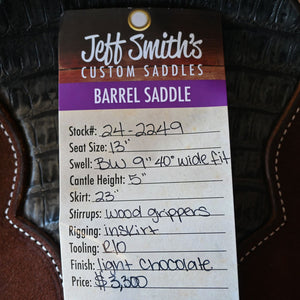 Jeff Smith's
CUSTOM SADDLES
BARREL SADDLE
Stock#: 24-2249
Seat Size: 13"
Swell: BW 9" 40° wide fit
Cantle Height: 5"
Skirt: 23"
Stirrups: wood grippers
Rigging: inskirt
Tooling: R10
Finish: light chocolate
Price: $3,300